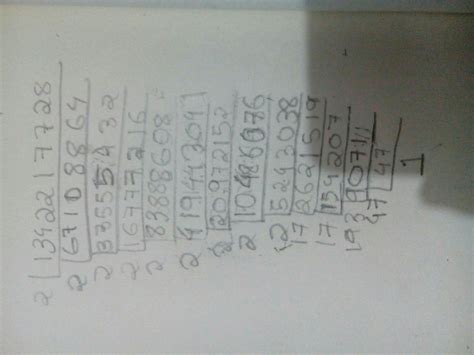 2 1342217728
2 67108864
2 33555432
2 16777216
2 83888608
2 41944304
2 20972152
2 10486076
2 5243038
17 2621519
17 154207
193 9071
47 47
1